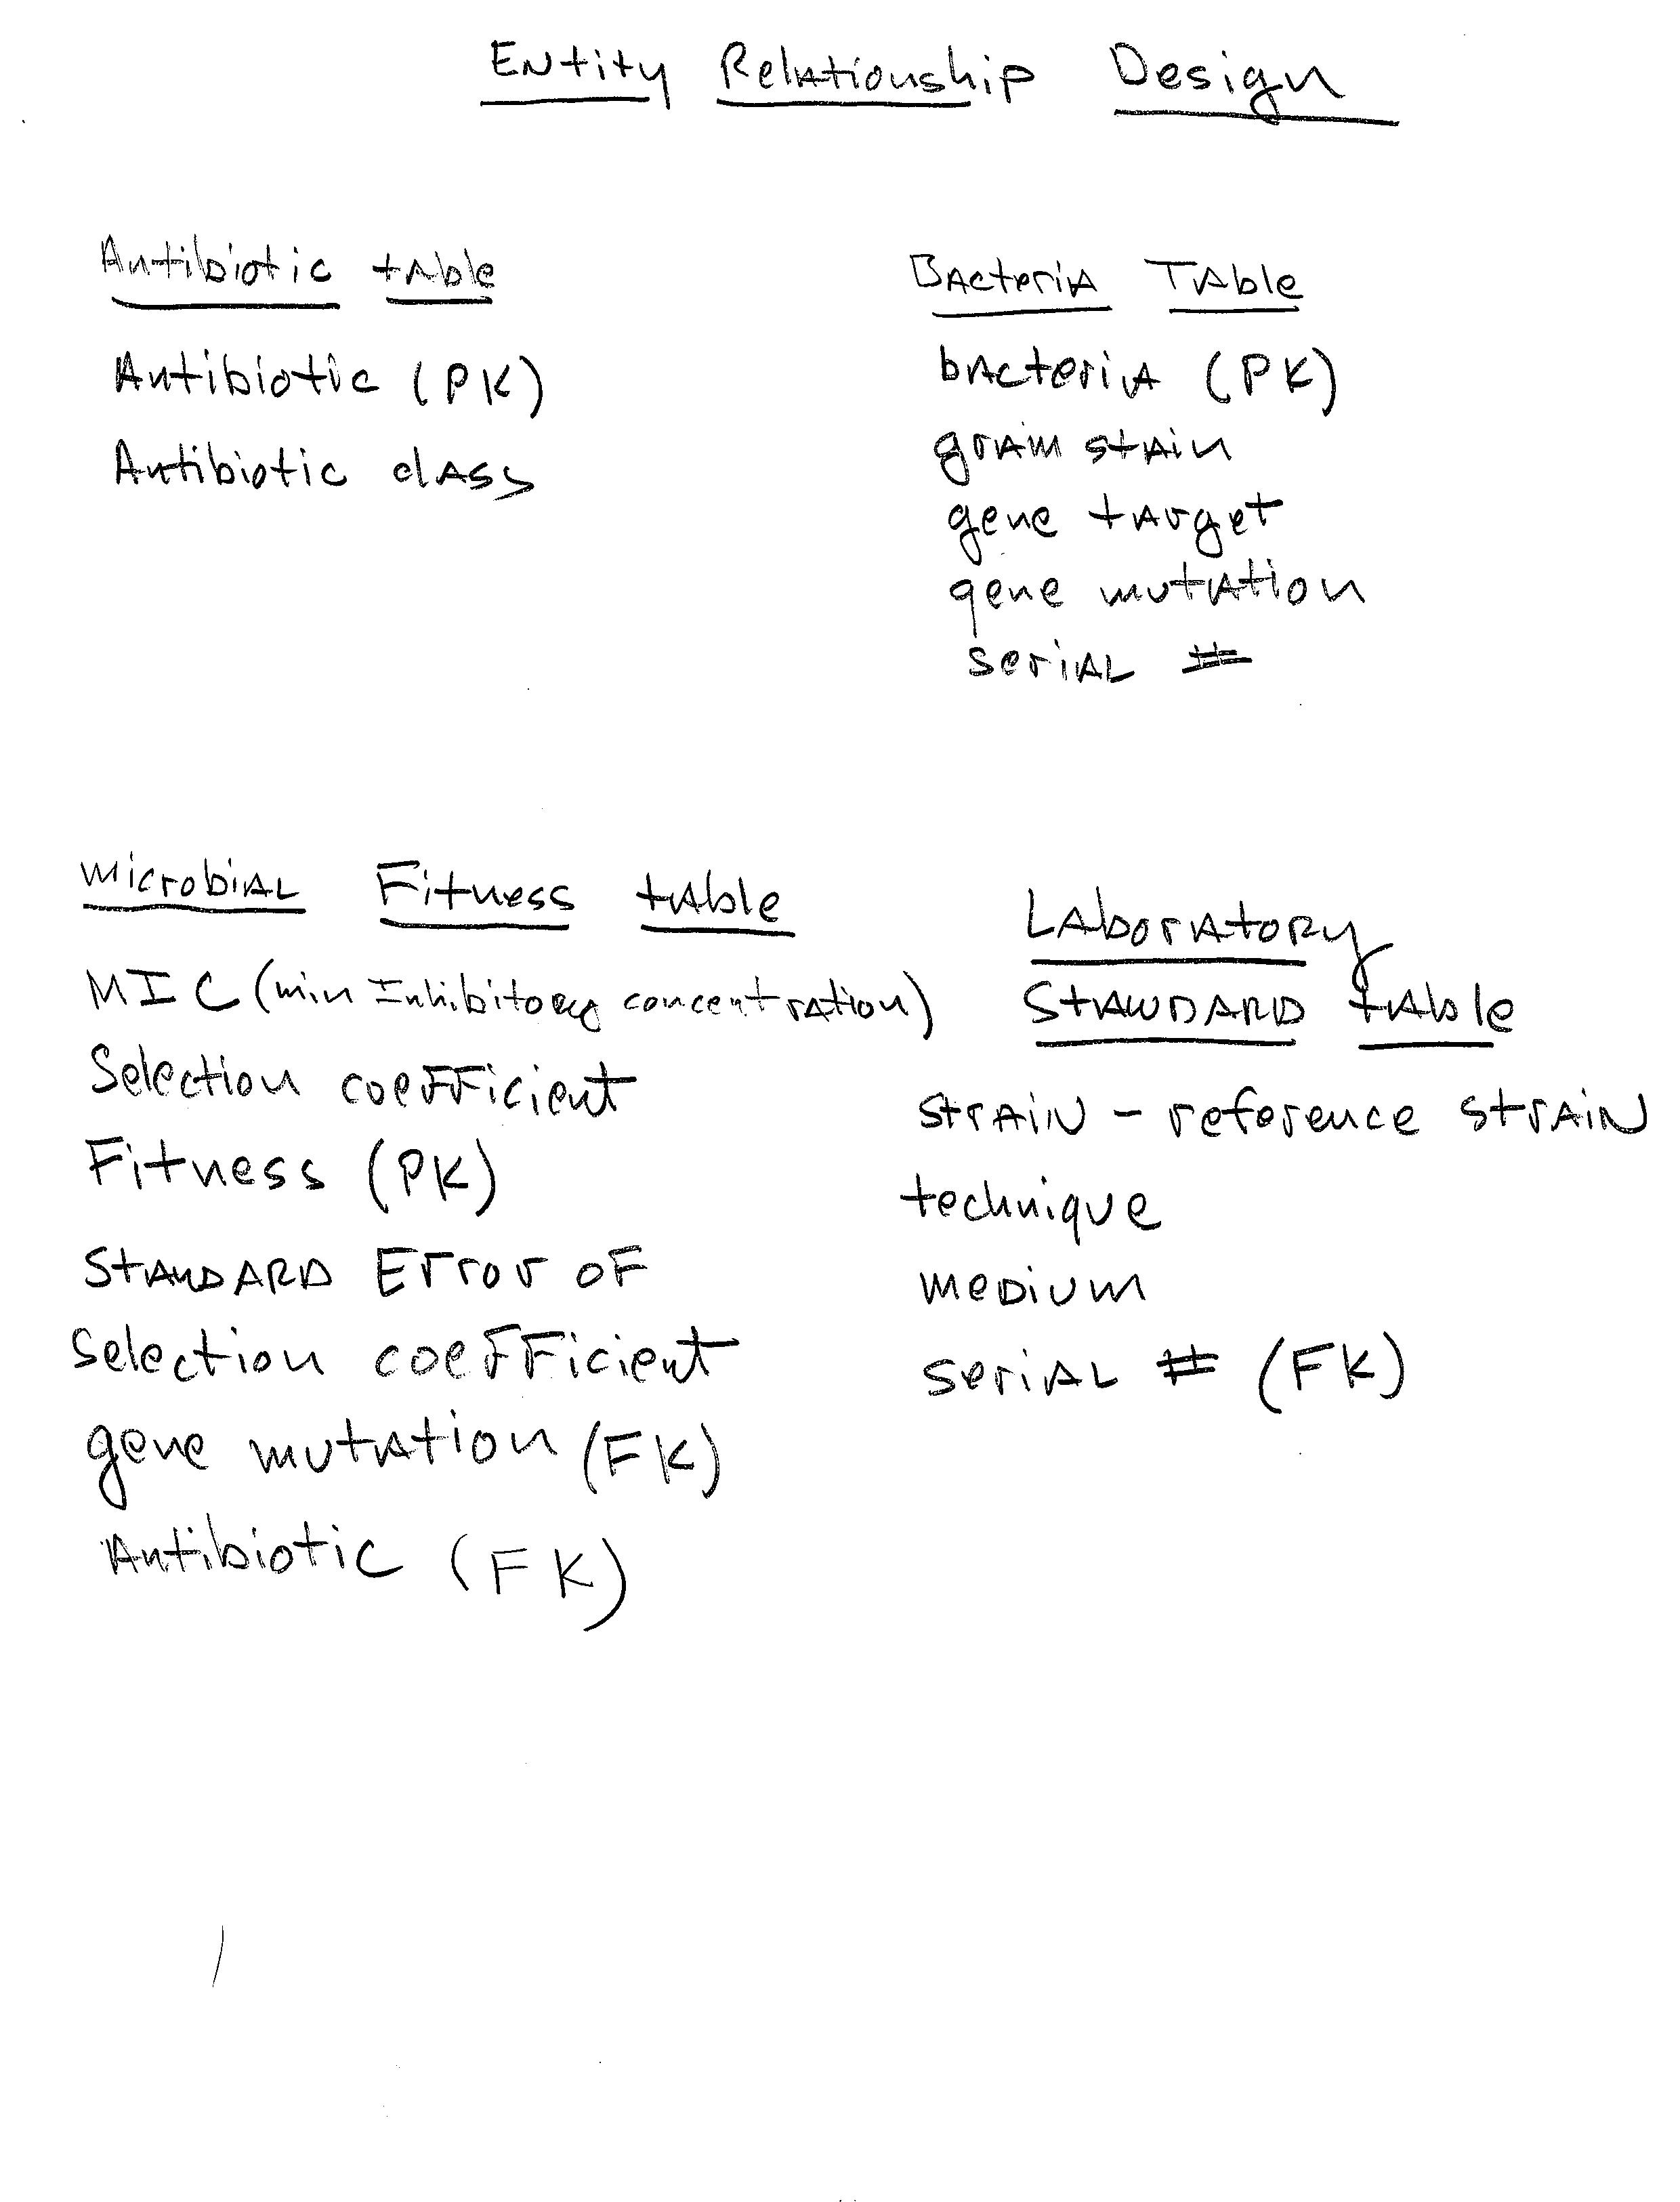 Entity Relationship Design
Antibiotic table
Antibiotic (PK)
Antibiotic class
Bacteria Table
bacteria (PK)
gram stain
gene target
gene mutation
serial #
microbial Fitness table
MIC (min Inhibitory concentration)
Selection coefficient
Fitness (PK)
Standard Error of
Selection coefficient
gene mutation (FK)
Antibiotic (FK)
Laboratory
Standard table
strain - reference strain
technique
medium
serial # (FK)